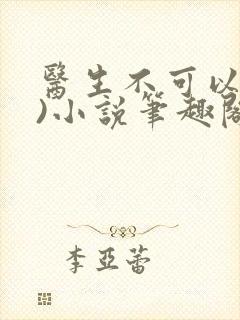 醫生不可以
)小說筆趣閣
李亞蕾